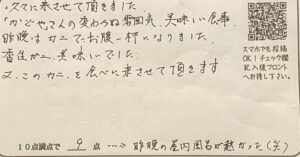 久々に来させて頂きました
"かどや"さんの変わらぬ雰囲気、美味しい食事、
昨晩はカニでお腹一杯になりました。
香住ガニ、美味しいでした。
又、このカニを食べに来させて頂きます
スマホでも投稿
OK!チェック欄
記入後フロント
へお渡し下さい。
10点満点で 9 点 ---> 昨晩の屋内風呂が熱かった(笑)